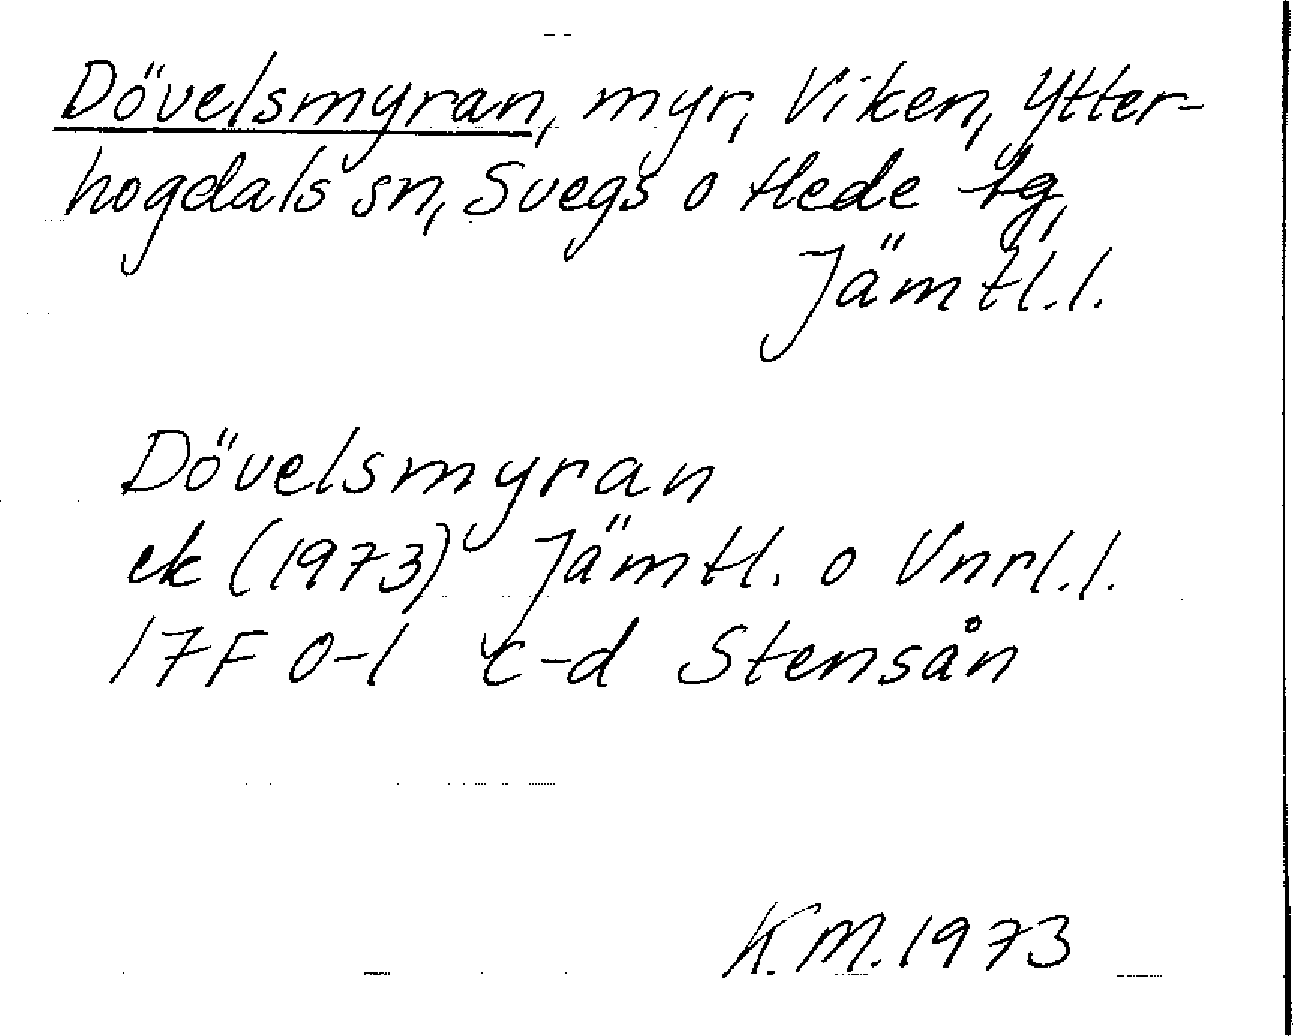 Dövelsmyran, myr, Viken, Ytter-
hogdals sn, Svegs o Hede tg,
Jämtl. l.
Dövelsmyran
ek (1973) Jämtl. o Vnrl. l.
17F 0-1 c-d Stensån
K.M. 1973